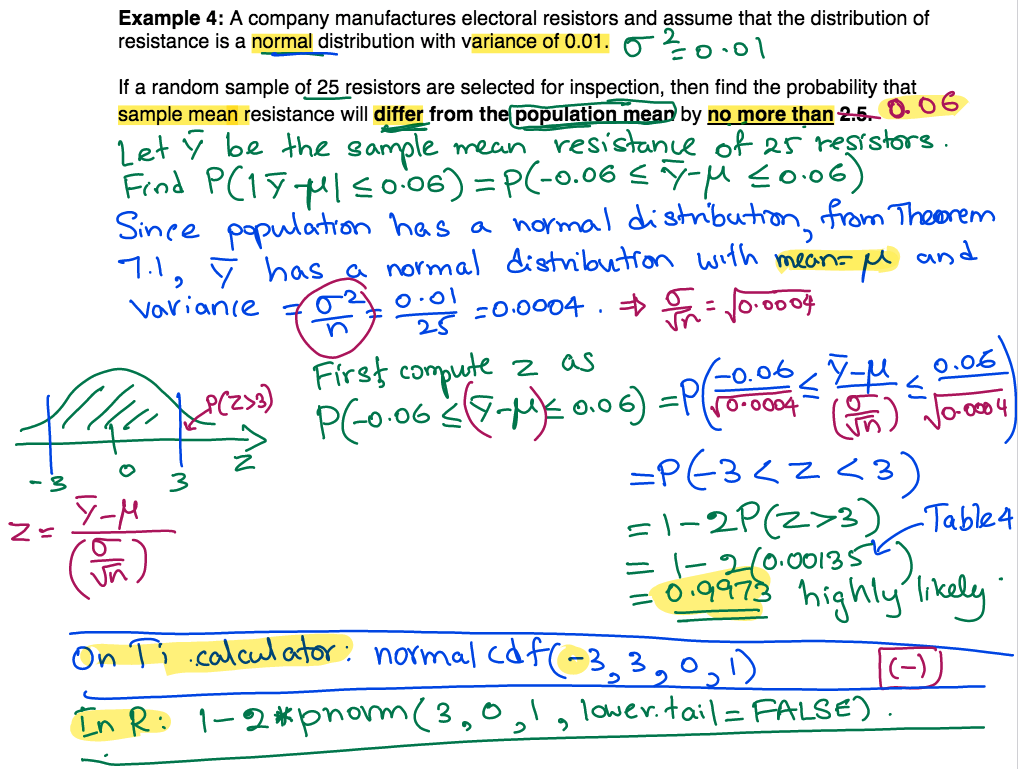 Example 4: A company manufactures electoral resistors and assume that the distribution of
resistance is a normal distribution with variance of 0.01. σ² = 0.01
If a random sample of 25 resistors are selected for inspection, then find the probability that
sample mean resistance will differ from the population mean by no more than 2.5. 0.06
Let ȳ be the sample mean resistance of 25 resistors.
Find P(|ȳ-μ| ≤ 0.06) = P(-0.06 ≤ ȳ-μ ≤ 0.06)
Since population has a normal distribution, from Theorem
7.1, ȳ has a normal distribution with mean = μ and
variance = σ²/n = 0.01/25 = 0.0004. ⇒ σ/√n = √0.0004
First compute z as
P(-0.06 ≤ (ȳ-μ) ≤ 0.06) = P(-0.06/√0.0004 ≤ ȳ-μ/(σ/√n) ≤ 0.06/√0.0004)
P(Z>3)
-3 0 3 Z
Z = ȳ-μ/(σ/√n)
= P(-3 < Z < 3)
= 1-2P(Z>3) Table 4
= 1-2(0.00135)
= 0.9973 highly likely.
On Ti calculator: normal cdf(-3, 3, 0, 1) (-)
In R: 1-2*pnorm(3, 0, 1, lower.tail = FALSE).